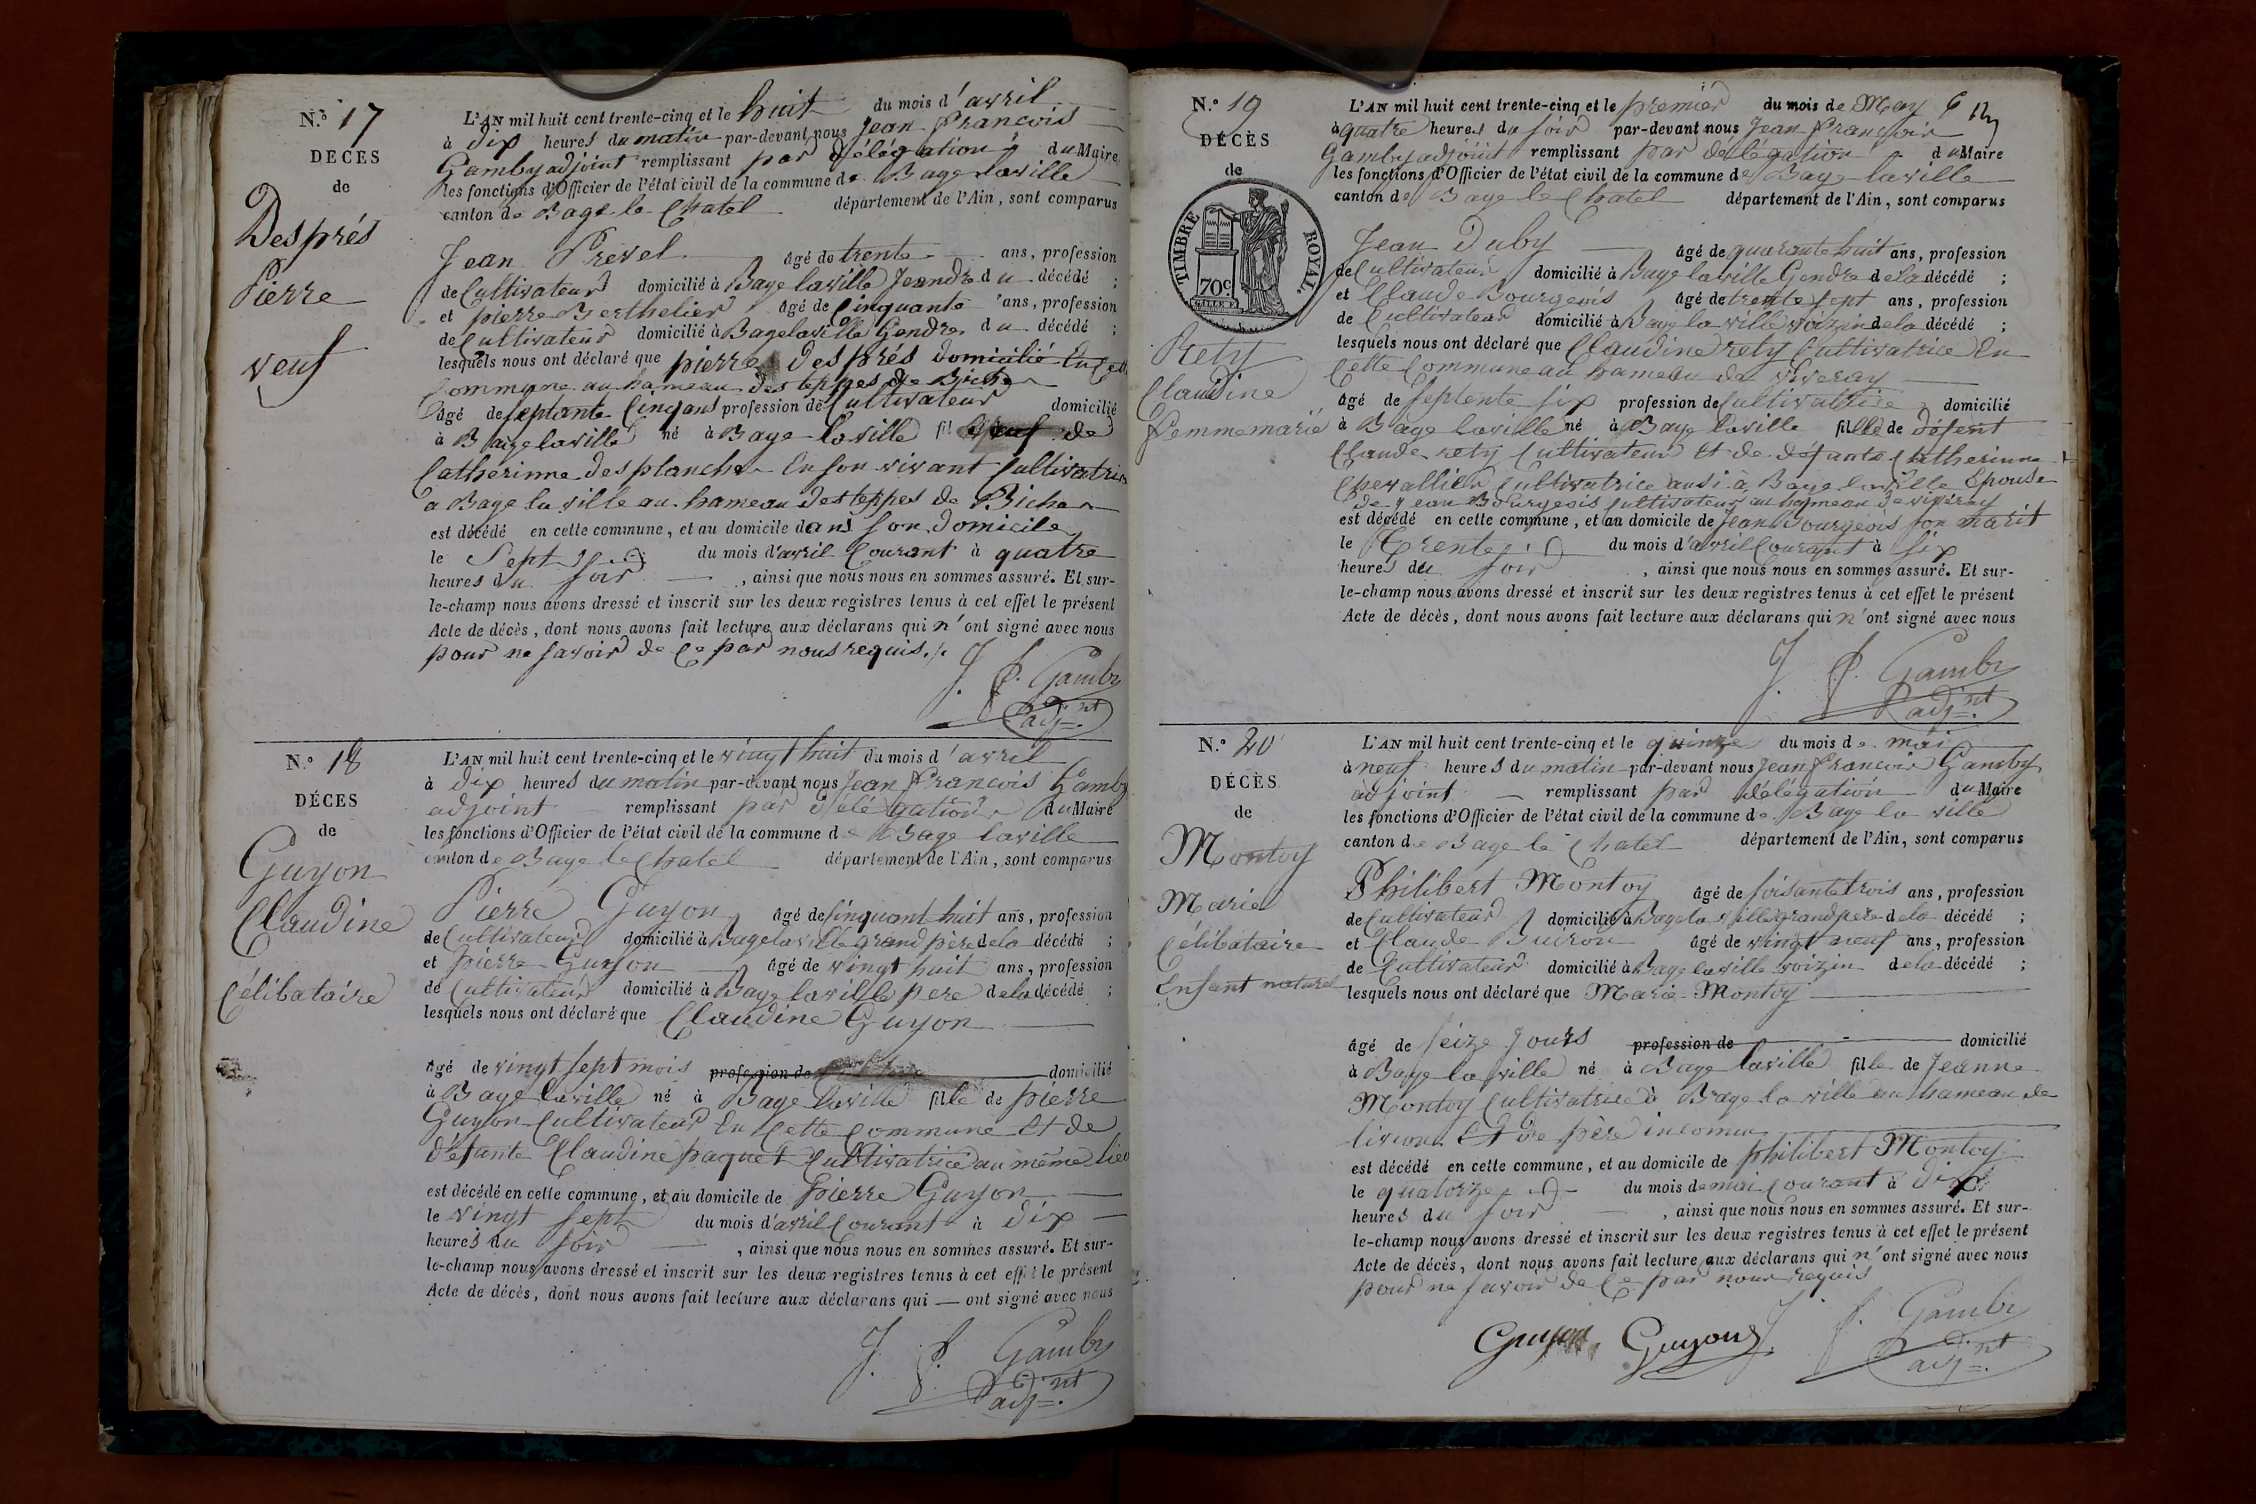 N.º 17
DÉCÈS
de
Després
Pierre
veuf
L'AN mil huit cent trente-cinq et le huit du mois d'avril
à dix heures du matin par-devant nous Jean François
Gamby adjoint remplissant par délégation du Maire
les fonctions d'Officier de l'état civil de la commune de Bage laville
canton de Bage le Chatel département de l'Ain, sont comparus
Jean Prevel âgé de trente ans, profession
de Cultivateur domicilié à Bage laville Jeandre du décédé ;
et pierre Berthelier âgé de Cinquante ans, profession
de Cultivateur domicilié à Bage laville Gendre du décédé ;
lesquels nous ont déclaré que pierre Després domicilié En Cette
Commune au hameau des teppes de Biche
âgé de septante Cinq ans profession de Cultivateur domicilié
à Bage laville né à Bage laville fil veuf de
Catherinne Desplanche En son vivant Cultivatrice
a Bage la ville au hameau des teppes de Biche
est décédé en cette commune, et au domicile dans son domicile
le Sept du mois d'avril Courant à quatre
heures du soir , ainsi que nous nous en sommes assuré. Et sur-
le-champ nous avons dressé et inscrit sur les deux registres tenus à cet effet le présent
Acte de décès, dont nous avons fait lecture aux déclarans qui n'ont signé avec nous
pour ne savoir de Ce par nous requis ./.
J. f. Gamby
adj.nt
N.º 18
DÉCES
de
Guyon
Claudine
Célibataire
L'AN mil huit cent trente-cinq et le vingt huit du mois d'avril
à dix heures du matin par-devant nous Jean François Gamby
adjoint remplissant par délégation du Maire
les fonctions d'Officier de l'état civil de la commune de Bage laville
canton de Bage le Chatel département de l'Ain, sont comparus
Pierre Guyon âgé de sinquant huit ans, profession
de Cultivateur domicilié à Bage laville grand père de la décédé ;
et pierre Guyon âgé de vingt huit ans, profession
de Cultivateur domicilié à Bage laville pere de la décédé ;
lesquels nous ont déclaré que Claudine Guyon
âgé de vingt sept mois profession de domicilié
à Bage laville né à Bage laville fille de pierre
Guyon Cultivateur En Cette Commune Et de
défunte Claudine paquet Cultivatrice au même lieu
est décédé en cette commune, et au domicile de pierre Guyon
le vingt sept du mois d'avril Courant à dix
heures du soir , ainsi que nous nous en sommes assuré. Et sur-
le-champ nous avons dressé et inscrit sur les deux registres tenus à cet effet le présent
Acte de décès, dont nous avons fait lecture aux déclarans qui — ont signé avec nous
J. f. Gamby
adj.nt
N.º 19
DÉCÈS
de
TIMBRE ROYAL.
70c.
Rety
Claudine
Femme marié
L'AN mil huit cent trente-cinq et le premier du mois de May
à quatre heures du soir par-devant nous Jean François
Gamby adjoint remplissant par délégation du Maire
les fonctions d'Officier de l'état civil de la commune de Bage laville
canton de Bage le Chatel département de l'Ain, sont comparus
Jean Duby âgé de quarante huit ans, profession
de Cultivateur domicilié à Bage laville Gendre de la décédé ;
et Claude Bourgeois âgé de trente sept ans, profession
de Cultivateur domicilié à Bage la ville voizin de la décédé ;
lesquels nous ont déclaré que Claudine rety Cultivatrice En
Cette Commune au hameau de viveray
âgé de septente six profession de Cultivatrice domicilié
à Bage laville né à Bage laville fille de défent
Claude rety Cultivateur Et de défante Catherinne
Chevallier Cultivatrice ausi à Bage laville Epouse
de Jean Bourgeois Cultivateur au hameau de viveray
est décédé en cette commune, et au domicile de Jean Bourgeois son marit
le Trente du mois d'avril Courant à six
heures du soir , ainsi que nous nous en sommes assuré. Et sur-
le-champ nous avons dressé et inscrit sur les deux registres tenus à cet effet le présent
Acte de décès, dont nous avons fait lecture aux déclarans qui n'ont signé avec nous
J. f. Gamby
adj.nt
N.º 20
DÉCÈS
de
Montoy
Marie
Célibataire
Enfant naturel
L'AN mil huit cent trente-cinq et le quinze du mois de mai
à neuf heures du matin par-devant nous Jean François Gamby
adjoint remplissant par délégation du Maire
les fonctions d'Officier de l'état civil de la commune de Bage la ville
canton de Bage le Chatel département de l'Ain, sont comparus
Philibert Montoy âgé de soisante trois ans, profession
de Cultivateur domicilié à Bage la ville grand pere de la décédé ;
et Claude Buiron âgé de vingt neuf ans, profession
de Cultivateur domicilié à Bage laville voizin de la décédé ;
lesquels nous ont déclaré que Marie Montoy
âgé de seize Jours profession de domicilié
à Bage la ville né à Bage laville fille de Jeanne
Montoy Cultivatrice à Bage la ville au hameau de
Et de père inconnu
est décédé en cette commune, et au domicile de philibert Montoy
le quatorze du mois de mai Courant à dix
heures du soir , ainsi que nous nous en sommes assuré. Et sur-
le-champ nous avons dressé et inscrit sur les deux registres tenus à cet effet le présent
Acte de décès, dont nous avons fait lecture aux déclarans qui n'ont signé avec nous
pour ne savoir de Ce par nous requis
Guyon Guyon J. f. Gamby
adj.nt